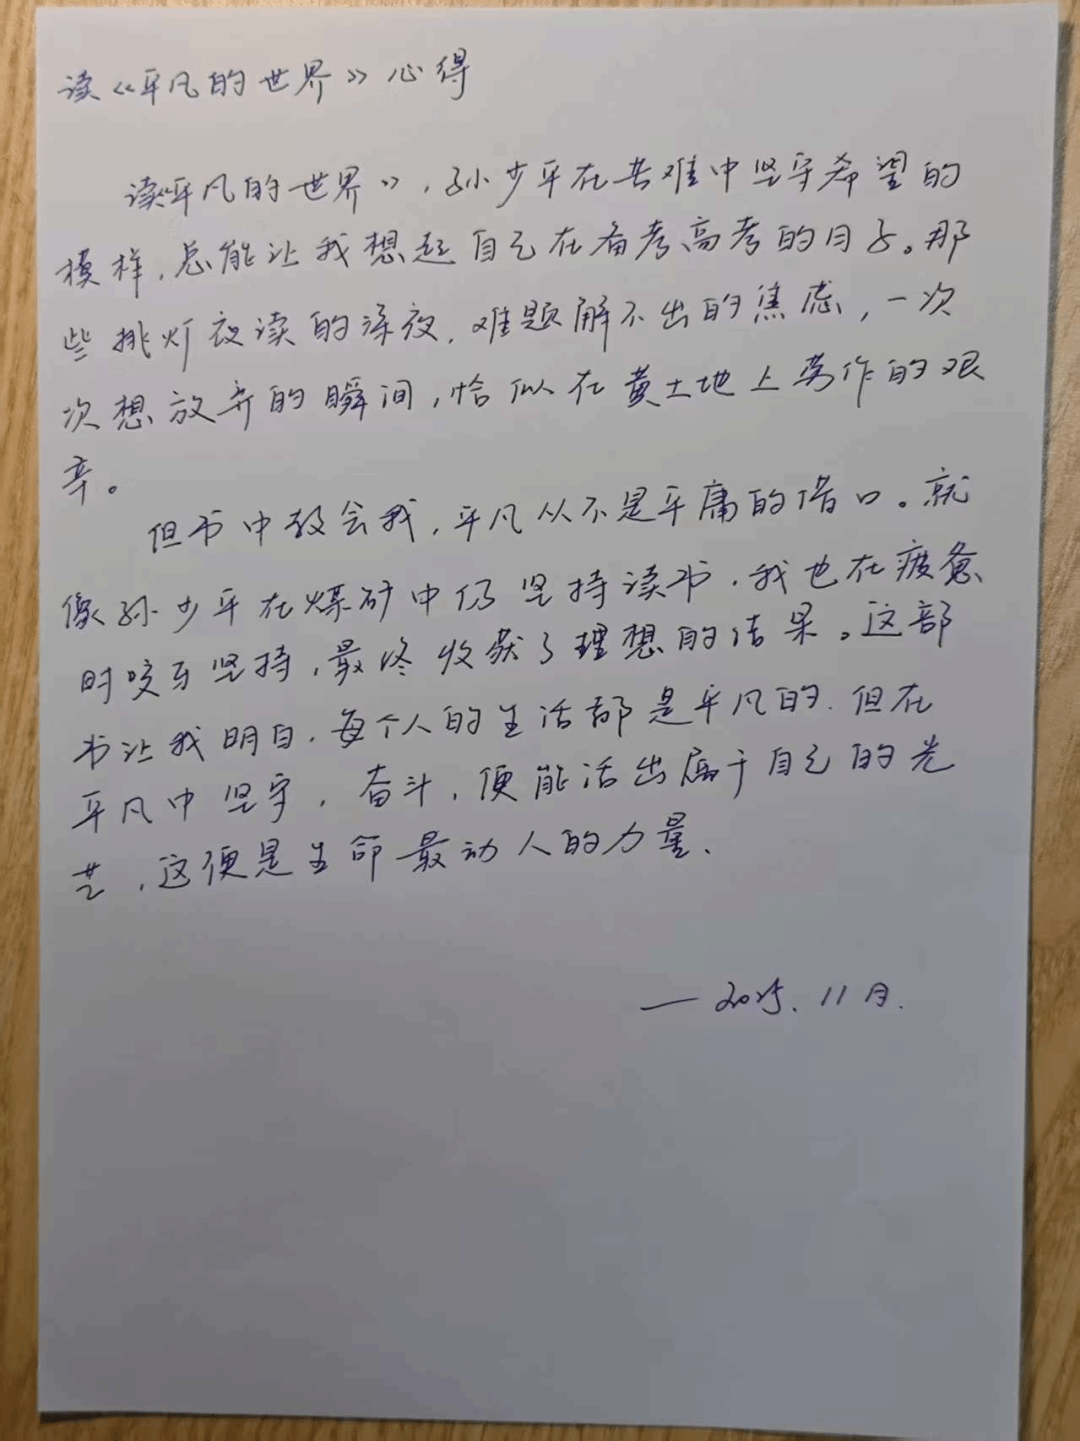 读《平凡的世界》心得
读《平凡的世界》，孙少平在苦难中坚守希望的
模样，总能让我想起自己在备考高考的日子。那
些挑灯夜读的深夜，难题解不出的焦虑，一次
次想放弃的瞬间，恰似在黄土地上劳作的艰
辛。
但书中教会我，平凡从不是平庸的借口。就
像孙少平在煤矿中仍坚持读书，我也在疲惫
时咬牙坚持，最终收获了理想的结果。这部
书让我明白，每个人的生活都是平凡的，但在
平凡中坚守，奋斗，便能活出属于自己的光
芒，这便是生命最动人的力量.
——2025.11月.